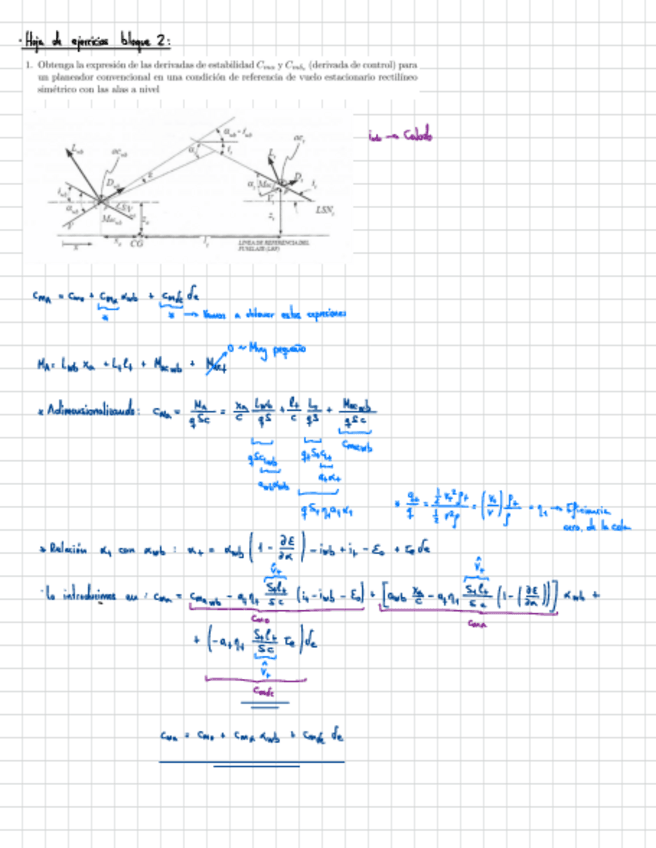 · Hoja de ejercicios bloque 2:
1. Obtenga la expresión de las derivadas de estabilidad C_mα y C_mδe (derivada de control) para
un planeador convencional en una condición de referencia de vuelo estacionario rectilíneo
simétrico con las alas a nivel
i_wb → Calado
CG
LSN_t
LINEA DE REFERENCIA DEL
FUSELAJE (LRF)
C_mA = C_m0 + C_mα α_wb + C_mδe δe
* → Vamos a obtener estas expresiones
0 ~ Muy pequeño
M_A = L_wb x_a + L_t l_t + M_acwb + M_act
* Adimensionalizando: C_mA = M_A / qSc = x_a/c L_wb/qS + l_t/c L_t/qS + M_acwb/qSc
C_macwb
q S_t η_t a_t α_t
* q_t/q = (½ V_t² ρ_t)/(½ V² ρ) = (V_t/V)² ρ_t/ρ = η_t → Eficiencia
aero. de la cola
* Relación α_t con α_wb : α_t = α_wb (1 - ∂ε/∂α) - i_wb + i_t - ε_0 + τ_e δe
V̂_t V̂_t
· Lo introducimos en : C_mA = C_macwb - a_t η_t S_t l_t/Sc (i_t - i_wb - ε_0) + [a_wb x_a/c - a_t η_t S_t l_t/Sc (1 - (∂ε/∂α))] α_wb +
C_m0 C_mα
+ (-a_t η_t S_t l_t/Sc τ_e) δe
V̂_t
C_mδe
C_mA = C_m0 + C_mα α_wb + C_mδe δe